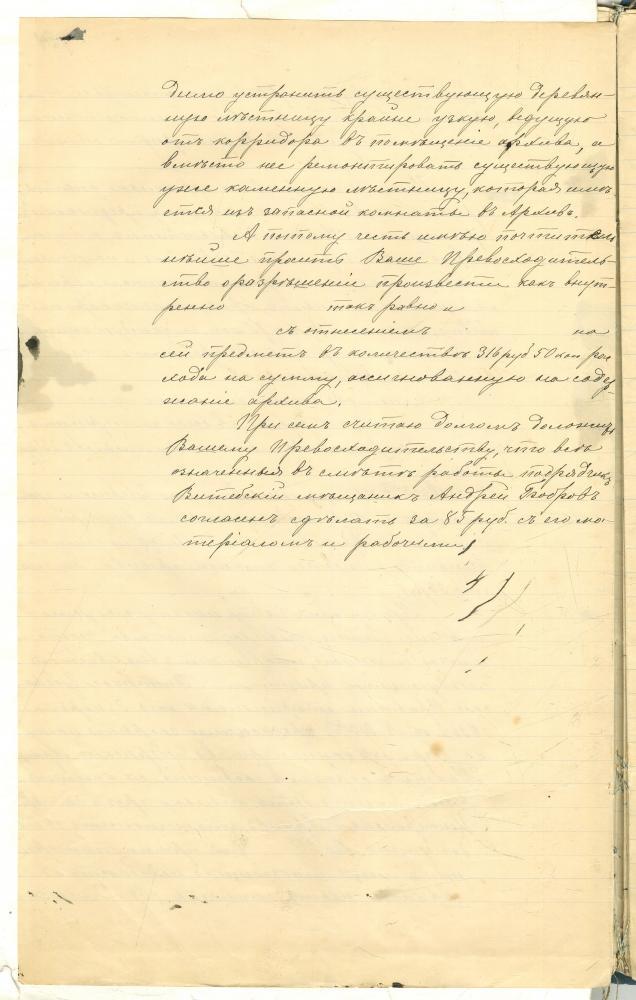 димо устранить существующую деревян-
ную лѣстницу крайне узкую, ведущую
отъ корридора въ помѣщеніе архива, а
вмѣсто нее ремонтировать существующую
уже каменную лѣстницу, которая имѣ
ется изъ запасной комнаты въ Архивъ.
А потому честь имѣю почтитель
нѣйше просить Ваше Превосходитель
ство о разрѣшеніи произвести какъ внут
ренно такъ равно и
съ отнесеніемъ на
сей предметъ въ количествѣ 316 руб 50 коп рас
хода на сумму, ассигнованную на содер-
жаніе архива.
При семъ считаю долгомъ доложить
Вашему Превосходительству, что всѣ
означенныя въ смѣтѣ работы подрядчикъ
Витебскій мѣщанинъ Андрей Бобровъ
согласенъ сдѣлать за 85 руб. съ его ма-
теріаломъ и рабочими